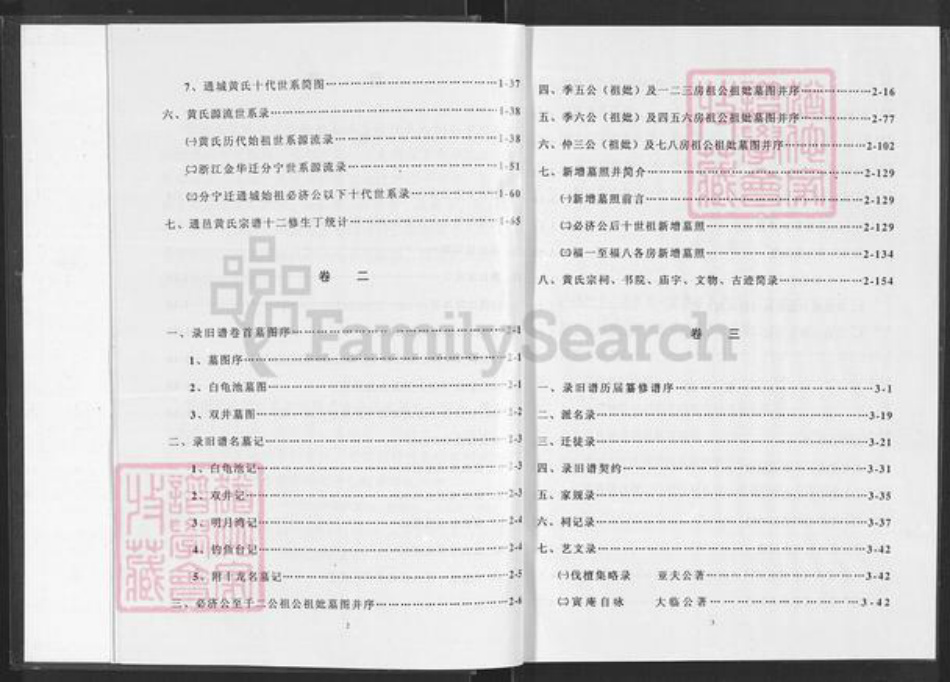 7、通城黄氏十代世系简图……1-37
六、黄氏源流世系录……1-38
㈠黄氏历代始祖世系源流录……1-38
㈡浙江金华迁分宁世系源流录……1-51
㈢分宁迁通城始祖必济公以下十代世系录……1-60
七、通邑黄氏宗谱十二修生丁统计……1-65
卷 二
一、录旧谱卷首墓图序……2-1
1、墓图序……2-1
2、白龟池墓图……2-1
3、双井墓图……2-2
二、录旧谱名墓记……2-3
1、白龟池记……2-3
2、双井记……2-3
3、明月湾记……2-4
4、钓鱼台记……2-4
5、附十龙名墓记……2-5
三、必济公至千二公祖公祖妣墓图并序……2-6
2
四、季五公（祖妣）及一二三房祖公祖妣墓图并序……2-16
五、季六公（祖妣）及四五六房祖公祖妣墓图并序……2-77
六、仲三公（祖妣）及七八房祖公祖妣墓图并序……2-102
七、新增墓照并简介……2-129
㈠新增墓照前言……2-129
㈡必济公后十世祖新增墓照……2-129
㈢福一至福八各房新增墓照……2-134
八、黄氏宗祠、书院、庙宇、文物、古迹简录……2-154
卷 三
一、录旧谱历届纂修谱序……3-1
二、派名录……3-19
三、迁徙录……3-21
四、录旧谱契约……3-31
五、家规录……3-35
六、祠记录……3-37
七、艺文录……3-42
㈠伐檀集略录 亚夫公著……3-42
㈡寅庵自咏 大临公著……3-42
3
FamilySearch